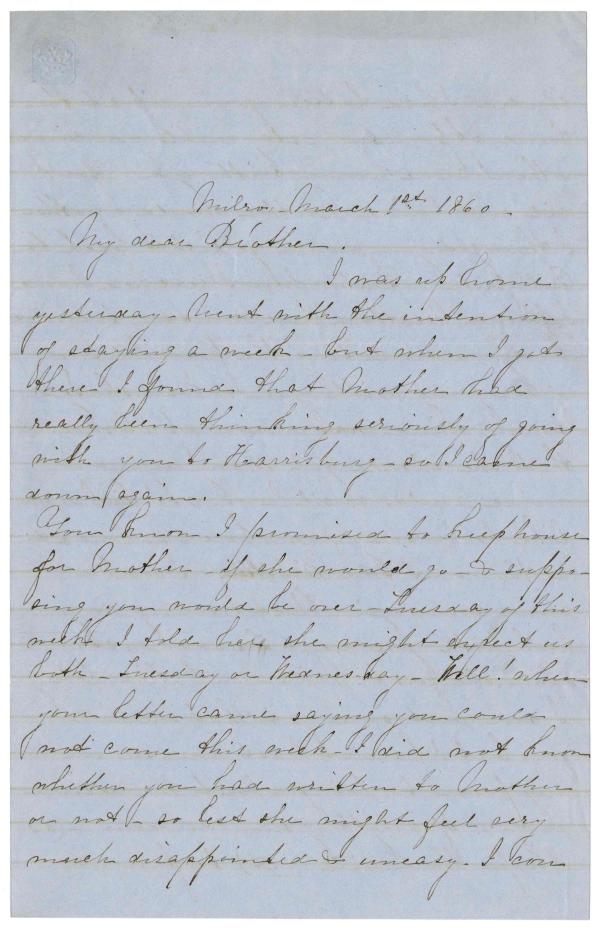 Milroy March 1st 1860.
My dear Brother.
I was up home
yesterday - Went with the intention
of staying a week - but when I got
there I found that Mother had
really been thinking seriously of going
with you to Harrisburg - so I came
down again.
You know I promised to keep house
for Mother - if she would go - & suppo-
sing you would be over - Tuesday of this
week I told her she might expect us
both - Tuesday or Wednesday - Well! when
your letter came saying you could
not come this week - I did not know
whether you had written to Mother
or not - so lest she might feel very
much disappointed & uneasy - I con